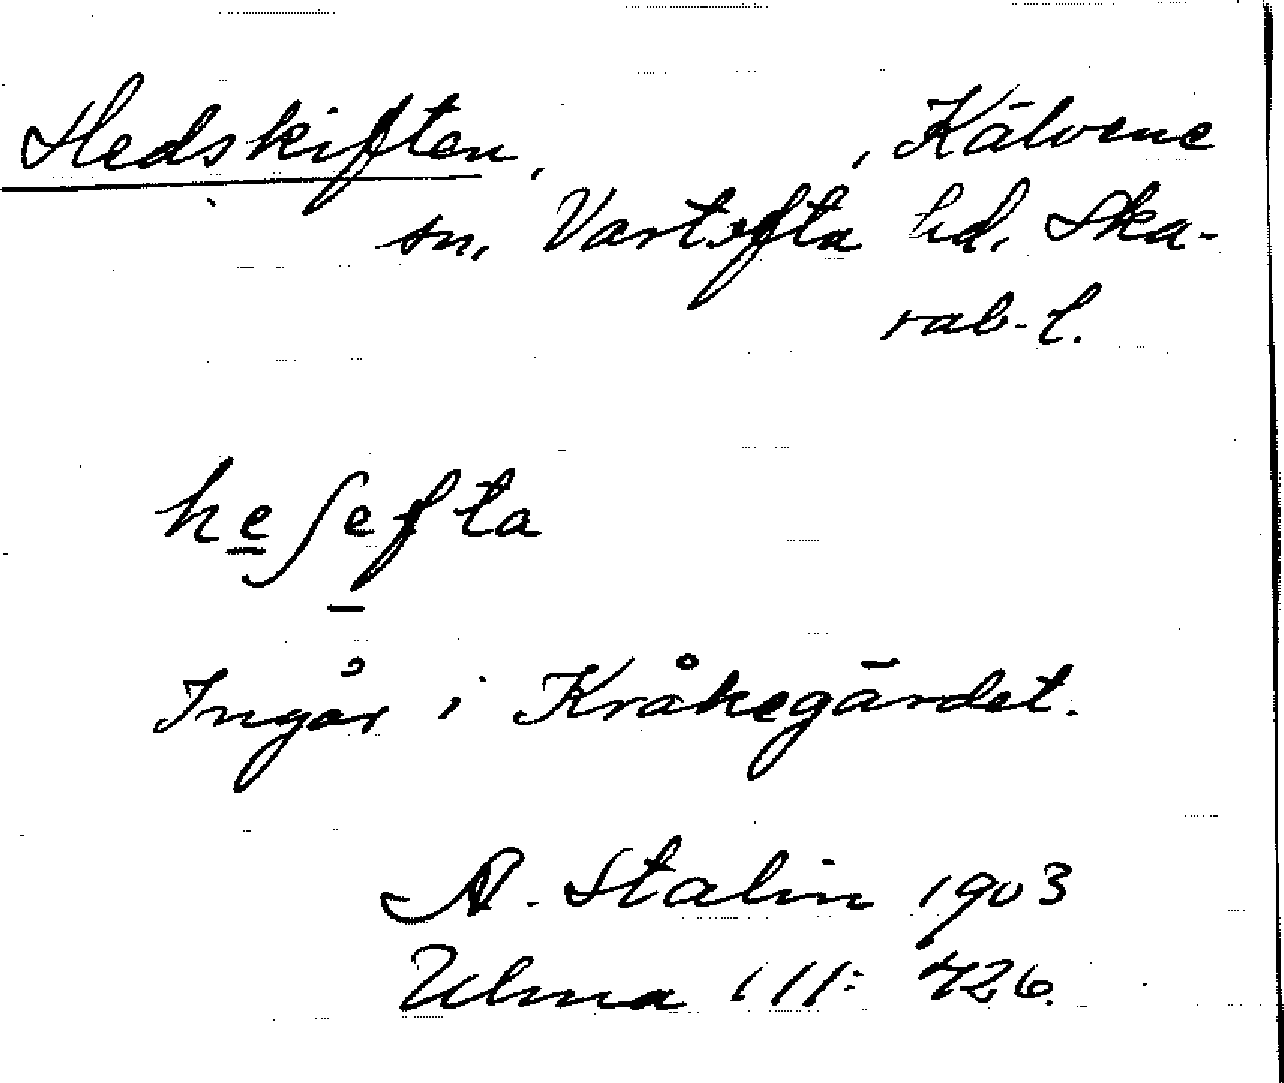 Hedskiften, , Kälvene
sn, Vartofta hd, Ska-
rab-l.
heʃefta
Ingår i Kråkegärdet.
A. Stalin 1903
Ulma 111: 426.